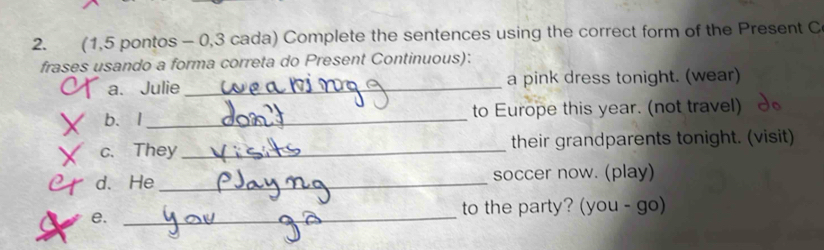 2. (1,5 pontos – 0,3 cada) Complete the sentences using the correct form of the Present C
frases usando a forma correta do Present Continuous):
a. Julie wearinng a pink dress tonight. (wear)
b. I don't to Europe this year. (not travel) do
c. They visits their grandparents tonight. (visit)
d. He playng soccer now. (play)
e. you go to the party? (you - go)